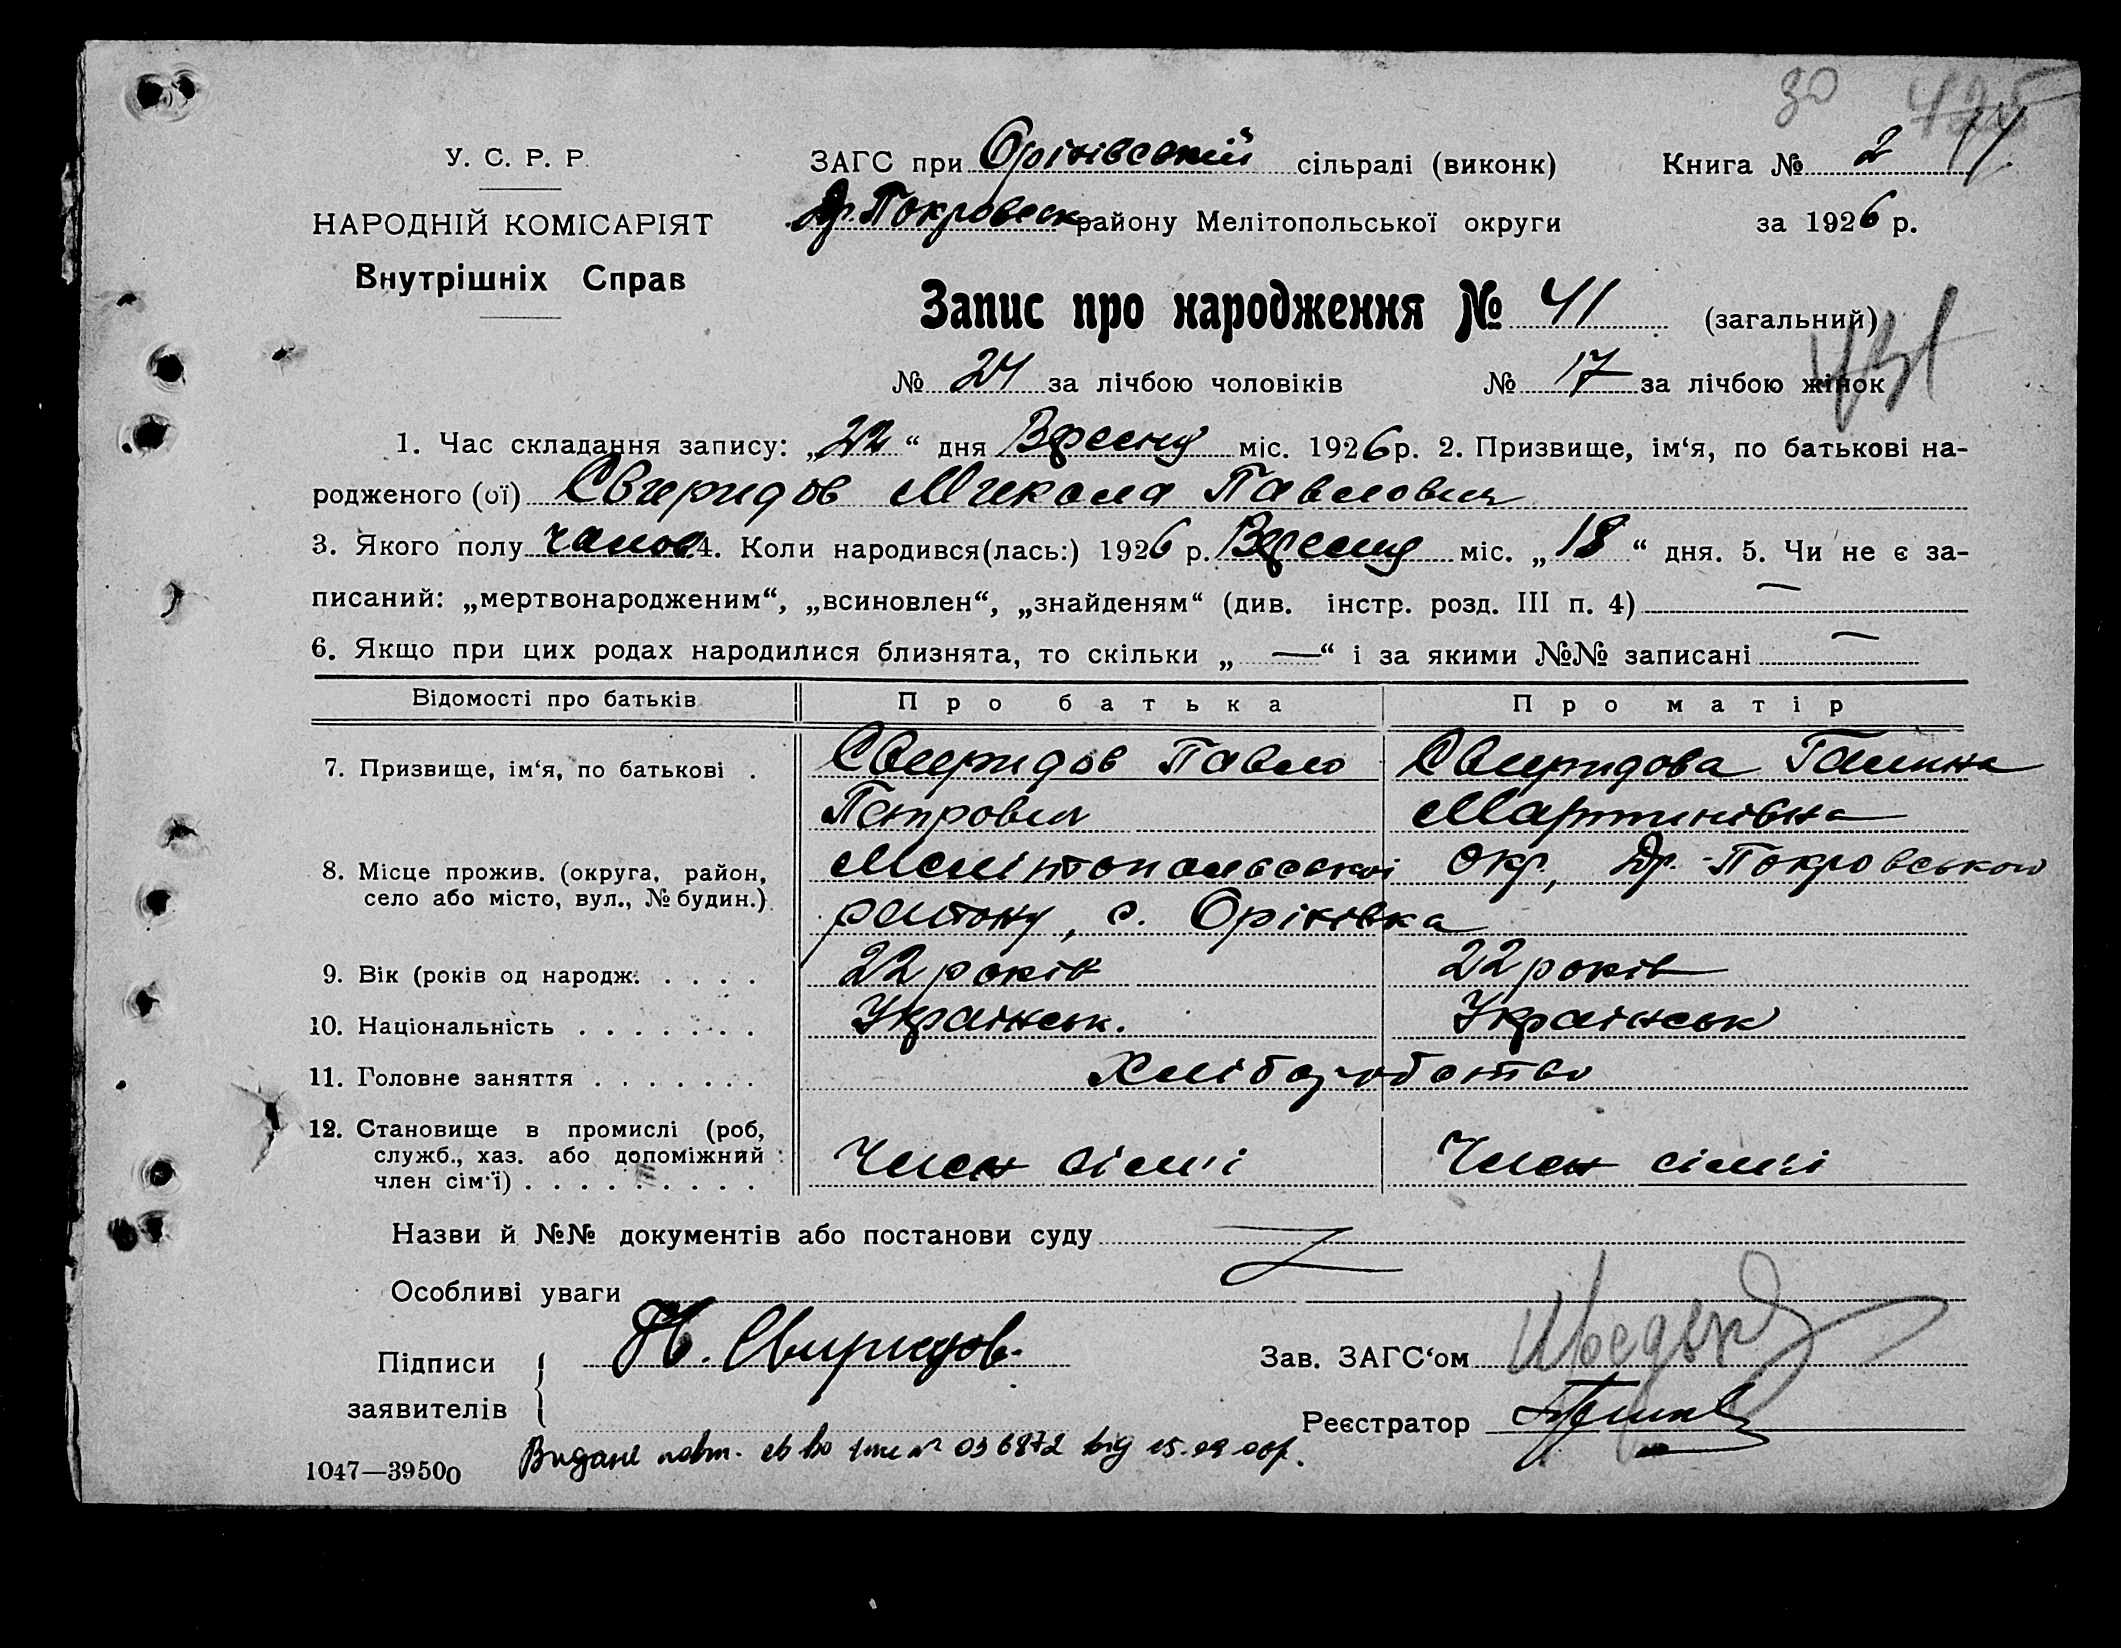 30 425
У. С. Р. Р.
ЗАГС при Оріхівській сільраді (виконк) Книга № 2
НАРОДНІЙ КОМІСАРІЯТ
Др. Покровськ району Мелітопольської округи за 1926 р.
Внутрішніх Справ
Запис про народження № 41 (загальний)
№ 24 за лічбою чоловіків № 17 за лічбою жінок
1. Час складання запису: „22“ дня Вресня міс. 1926 р. 2. Призвище, ім‘я, по батькові на-
родженого (ої) Свиридов Микола Павлович
3. Якого полу чолов. 4. Коли народився(лась:) 1926 р. Вересня міс. „18“ дня. 5. Чи не є за-
писаний: „мертвонародженим“, „всиновлен“, „знайденям“ (див. інстр. розд. III п. 4) —
6. Якщо при цих родах народилися близнята, то скільки „ — “ і за якими №№ записані —
Відомості про батьків Про батька Про матір
7. Призвище, ім‘я, по батькові . Свиридов Павло Свиридова Галина
Петрович Мартинівна
8. Місце прожив. (округа, район, Мелітопольської окр, Др.-Покровського
село або місто, вул., № будин.) району, с. Оріхівка
9. Вік (років од народж. . . . . 22 років 22 років
10. Національність . . . . . . . Українськ. Українськ
11. Головне заняття . . . . . . . Хліборобство
12. Становище в промислі (роб,
служб., хаз. або допоміжний Член сім'ї Член сім'ї
член сім‘ї) . . . . . . . . .
Назви й №№ документів або постанови суду
Особливі уваги
Підписи П. Свиридов. Зав. ЗАГС‘ом
заявителів Реєстратор
Видане повт. св во від
1047—39500